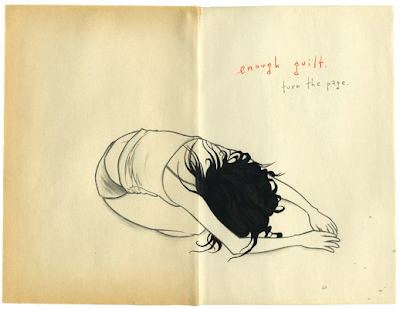 enough guilt.
turn the page.